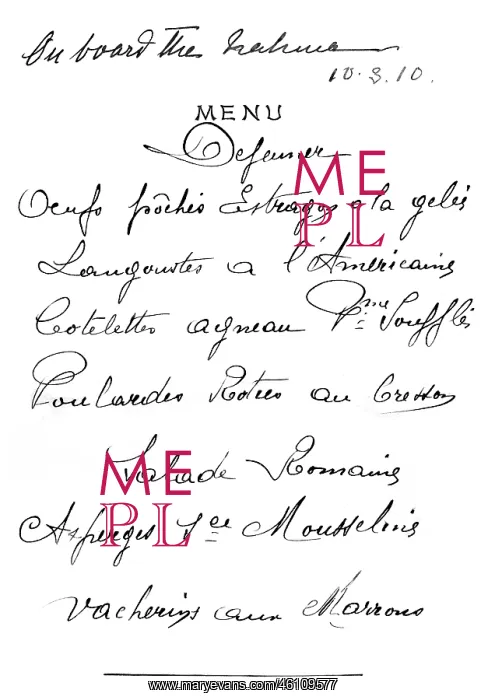 On board the Nahma
10.3.10.
MENU
Dejeuner
Oeufs pôchés Estragon a la gelée
Langoustes a l'Americaine
Cotelettes agneau Pme Soufflés
Poulardes Roties au Cresson
Salade Romaine
Asperges Sce Mousseline
Vacherins aux Marrons
ME
PL
ME
PL
www.maryevans.com/46109577